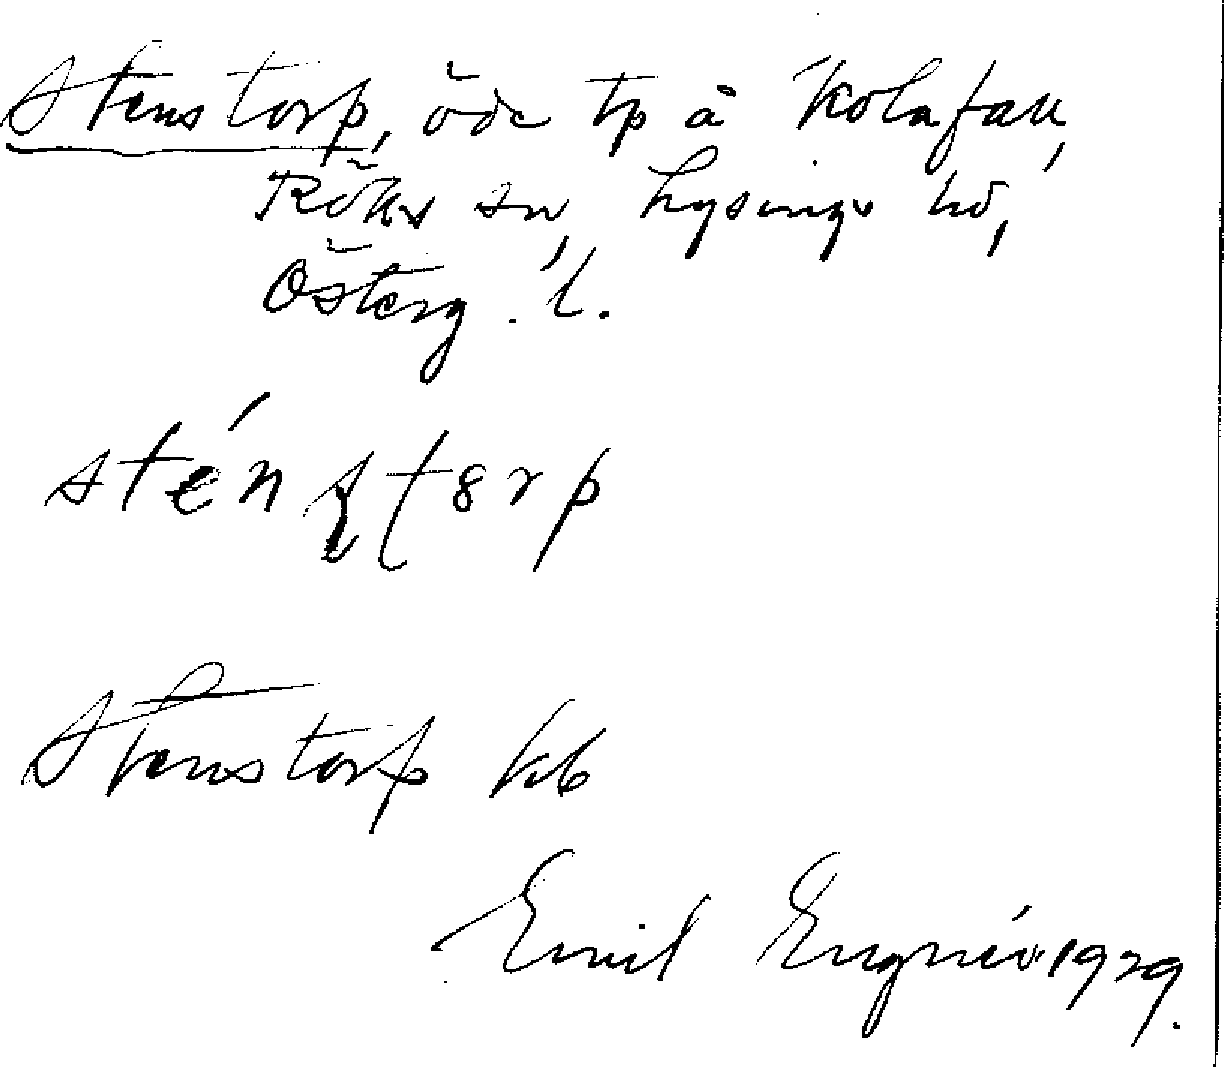 Stenstorp, öde tp å Kolafall,
Röks sn, Lysings hd,
Österg. l.
sténstorp
Stenstorp kb
Emil Engnér 1929.